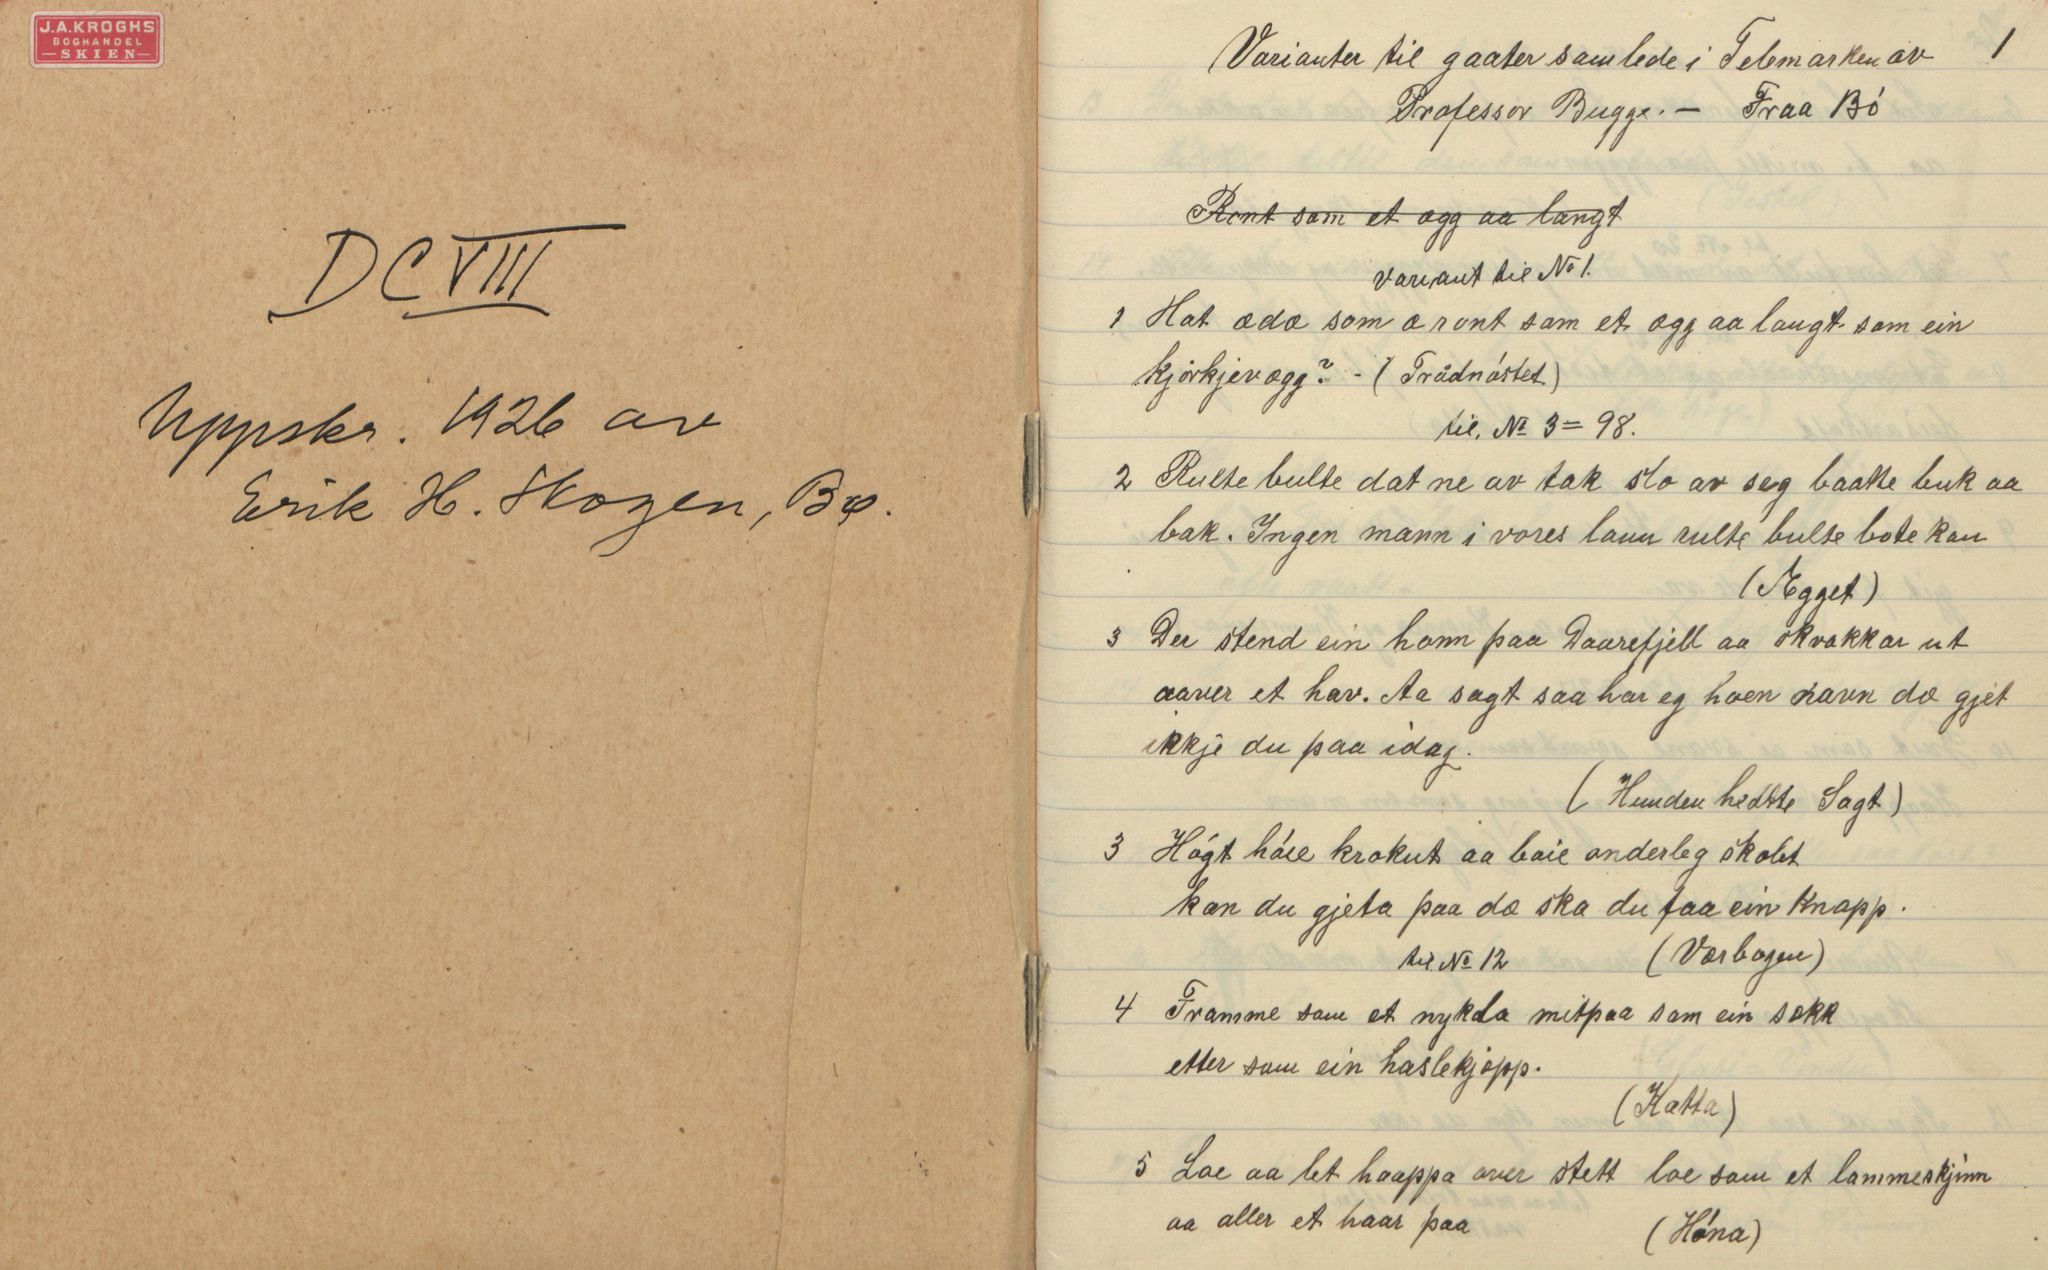 J.A.KROGHS
BOGHANDEL
SKIEN
DCVIII
Uppskr. 1926 av
Erik H. Skogen, Bø.
1
Varianter til gaater samlede i Telemarken av
Professor Bugge. — Fraa Bó
Ront som et ægg aa langt
variant til No 1.
1 Hat ædæ som æ ront som et ægg aa langt som ein
kjórkjevægg? - (Trådnóstet)
til. No 3 = 98.
2 Rulte bulte dat ne av tak slo av seg baatte buk aa
bak. Ingen mann i vores lann rulte bulte bote kan
(Ægget)
3 Der stend ein honn paa Daarefjell aa skvakkar ut
aaver et hav. Aa sagt saa har eg hoen navn dæ gjet
ikkje du paa idag.
(Hunden hedtte Sagt)
3 Hógt hóie krokut aa baie onderleg skolet
kan du gjeta paa dæ ska du faa ein Knapp.
til No 12 (Værbogen)
4 Framme som et nykla mitpaa som ein sekk
etter som ein haslekjæpp.
(Katta)
5 Loe aa let haappa over stett loe som et lammeskjinn
aa aller et haar paa (Hóna)